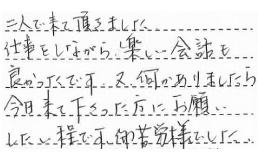 二人で来て頂きました
仕事をしながら、楽しい会話も
良かったです。又、何かありましたら
今日来て下さった方にお願い
したい程です、御苦労様でした。